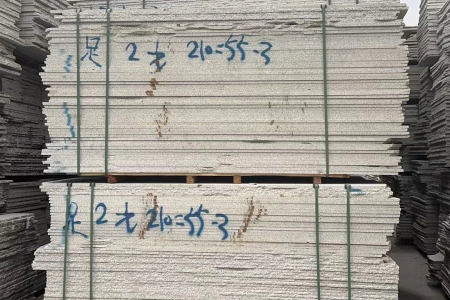 足 2七 210=55-3
足 2七 210=55-3